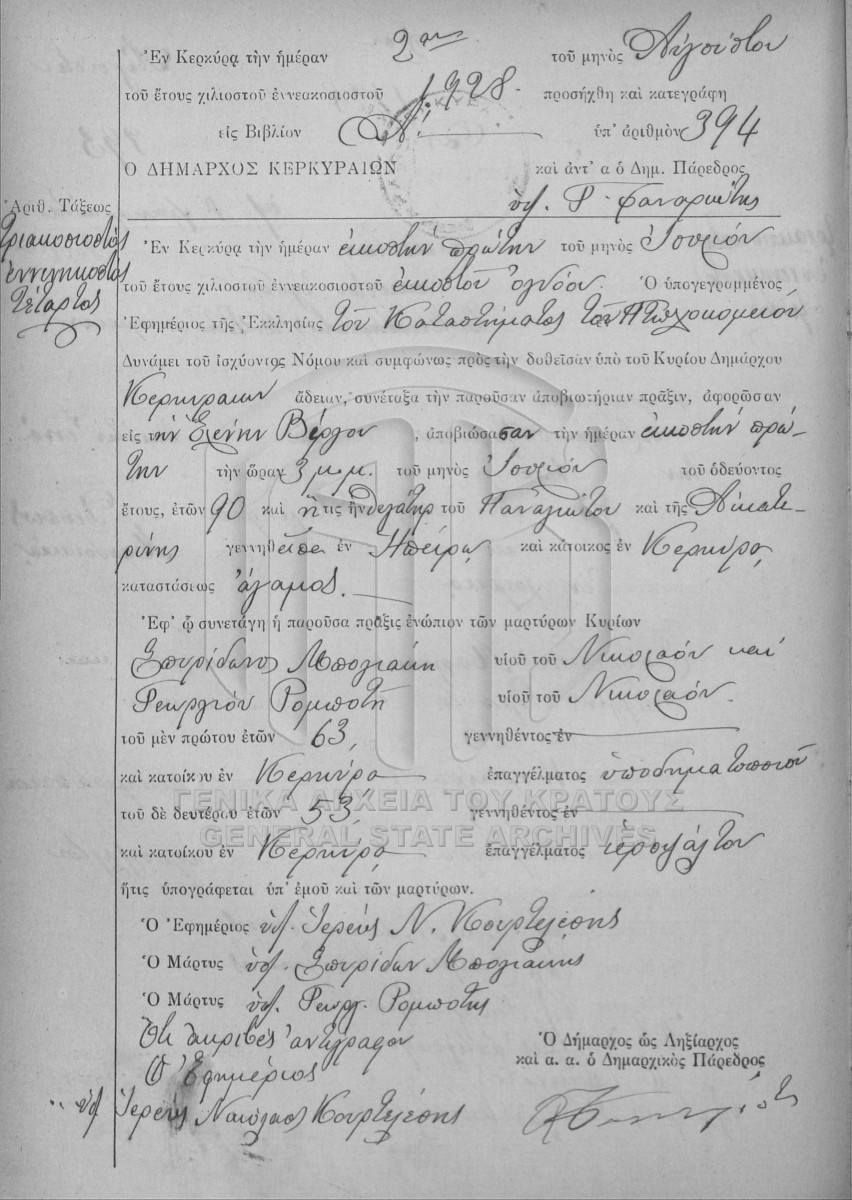 Ἐν Κερκύρᾳ τὴν ἡμέραν 2αν τοῦ μηνὸς Αὐγούστου
τοῦ ἔτους χιλιοστοῦ ἐννεακοσιοστοῦ 1928 προσήχθη καὶ κατεγράφη
εἰς Βιβλίον Α΄. ὑπ' ἀριθμὸν 394
Ο ΔΗΜΑΡΧΟΣ ΚΕΡΚΥΡΑΙΩΝ καὶ ἀντ' α ὁ Δημ. Πάρεδρος
Ἀριθ. Τάξεως
ὑπ. Φαναριώτης
Τριακοσιοστὸς
ἐννενηκοστὸς
τέταρτος
Ἐν Κερκύρᾳ τὴν ἡμέραν εἰκοστὴν πρώτην τοῦ μηνὸς Ἰουλίου
τοῦ ἔτους χιλιοστοῦ ἐννεακοσιοστοῦ εἰκοστοῦ ὀγδόου. Ὁ ὑπογεγραμμένος
Ἐφημέριος τῆς Ἐκκλησίας τοῦ Καταστήματος τοῦ Πτωχοκομείου
Δυνάμει τοῦ ἰσχύοντος Νόμου καὶ συμφώνως πρὸς τὴν δοθεῖσαν ὑπὸ τοῦ Κυρίου Δημάρχου
Κερκυραίων ἄδειαν, συνέταξα τὴν παροῦσαν ἀποβιωτήριαν πρᾶξιν, ἀφορῶσαν
εἰς τὴν Ἑλένην Βέργου, ἀποβιώσασαν τὴν ἡμέραν εἰκοστὴν πρώ-
την τὴν ὥραν 3 μ.μ. τοῦ μηνὸς Ἰουλίου τοῦ ὁδεύοντος
ἔτους, ἐτῶν 90 καὶ ἥτις ἦν θυγάτηρ τοῦ Παναγιώτου καὶ τῆς Αἰκατε-
ρίνης γεννηθεῖσα ἐν Ἠπείρῳ καὶ κάτοικος ἐν Κερκύρᾳ
καταστάσεως ἄγαμος.
Ἐφ' ᾧ συνετάγη ἡ παροῦσα πρᾶξις ἐνώπιον τῶν μαρτύρων Κυρίων
Σπυρίδωνος Μπογιάκη υἱοῦ τοῦ Νικολάου καὶ
Γεωργίου Ρομπότη υἱοῦ τοῦ Νικολάου.
τοῦ μὲν πρώτου ἐτῶν 63, γεννηθέντος ἐν
καὶ κατοίκου ἐν Κερκύρᾳ ἐπαγγέλματος ὑποδηματοποιοῦ
τοῦ δὲ δευτέρου ἐτῶν 53, γεννηθέντος ἐν
καὶ κατοίκου ἐν Κερκύρᾳ ἐπαγγέλματος ἱεροψάλτου
ἥτις ὑπογράφεται ὑπ' ἐμοῦ καὶ τῶν μαρτύρων.
Ὁ Ἐφημέριος ὑπ. Ἱερεὺς Ν. Κουρτελέσης
Ὁ Μάρτυς ὑπ. Σπυρίδων Μπογιάκης
Ὁ Μάρτυς ὑπ. Γεωργ. Ρομπότης
Ὅτι ἀκριβὲς ἀντίγραφον
Ὁ Ἐφημέριος
ὑπ. Ἱερεὺς Νικόλαος Κουρτελέσης
Ὁ Δήμαρχος ὡς Ληξίαρχος
καὶ α. α. ὁ Δημαρχικὸς Πάρεδρος
ΓΕΝΙΚΑ ΑΡΧΕΙΑ ΤΟΥ ΚΡΑΤΟΥΣ
GENERAL STATE ARCHIVES